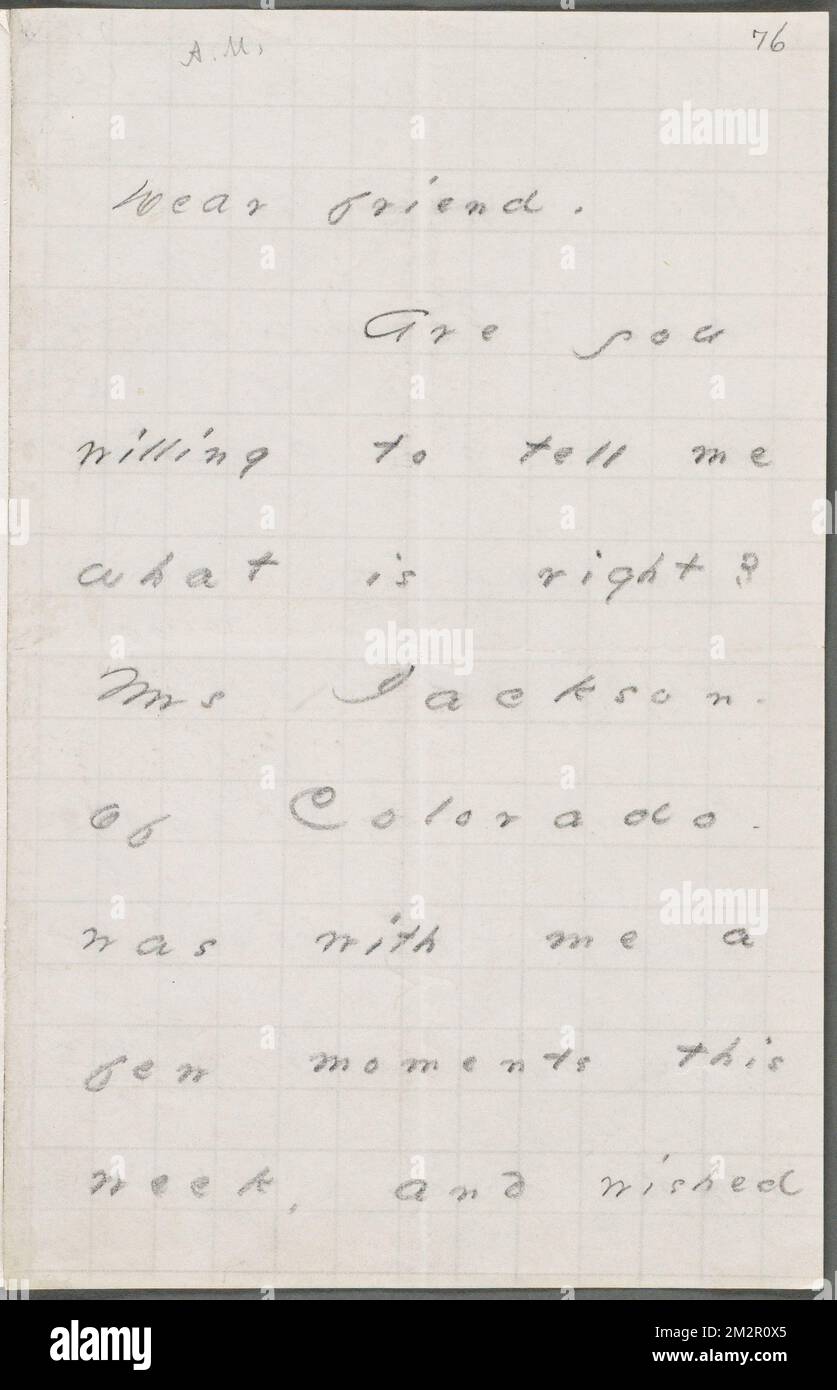 A.M.
76
Dear friend.
Are you
willing to tell me
what is right?
Mrs Jackson.
of Colorado.
was with me a
few moments this
week, and wished
alamy
alamy
alamy
alamy
Image ID: 2M2R0X5
www.alamy.com